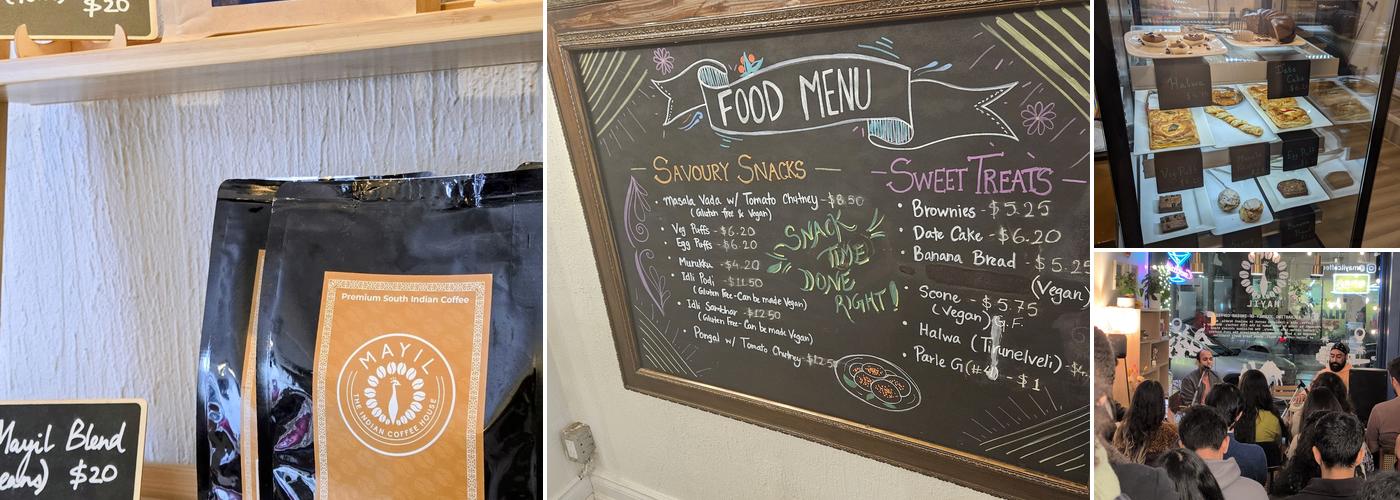 $20
Premium South Indian Coffee
MAYIL
THE INDIAN COFFEE HOUSE
Mayil Blend
$20
FOOD MENU
SAVOURY SNACKS
• Masala Vada w/ Tomato Chutney - $8.50
(Gluten free & Vegan)
• Veg Puffs - $6.20
• Egg Puffs - $6.20
• Murukku - $4.20
• Idli Podi - $11.50
(Gluten Free - Can be made Vegan)
• Idli Sambhar - $12.50
(Gluten Free - Can be made Vegan)
• Pongal w/ Tomato Chutney - $12.50
SNACK
TIME!
DONE
RIGHT!
SWEET TREATS
• Brownies - $5.25
• Date Cake - $6.20
• Banana Bread - $5.25
(Vegan)
• Scone - $5.75
(Vegan) G.F.
• Halwa (Tirunelveli)
• Parle G (#4) - $1
Halwa
Date
Cake
Veg Puffs
Egg Puff
MAYIL